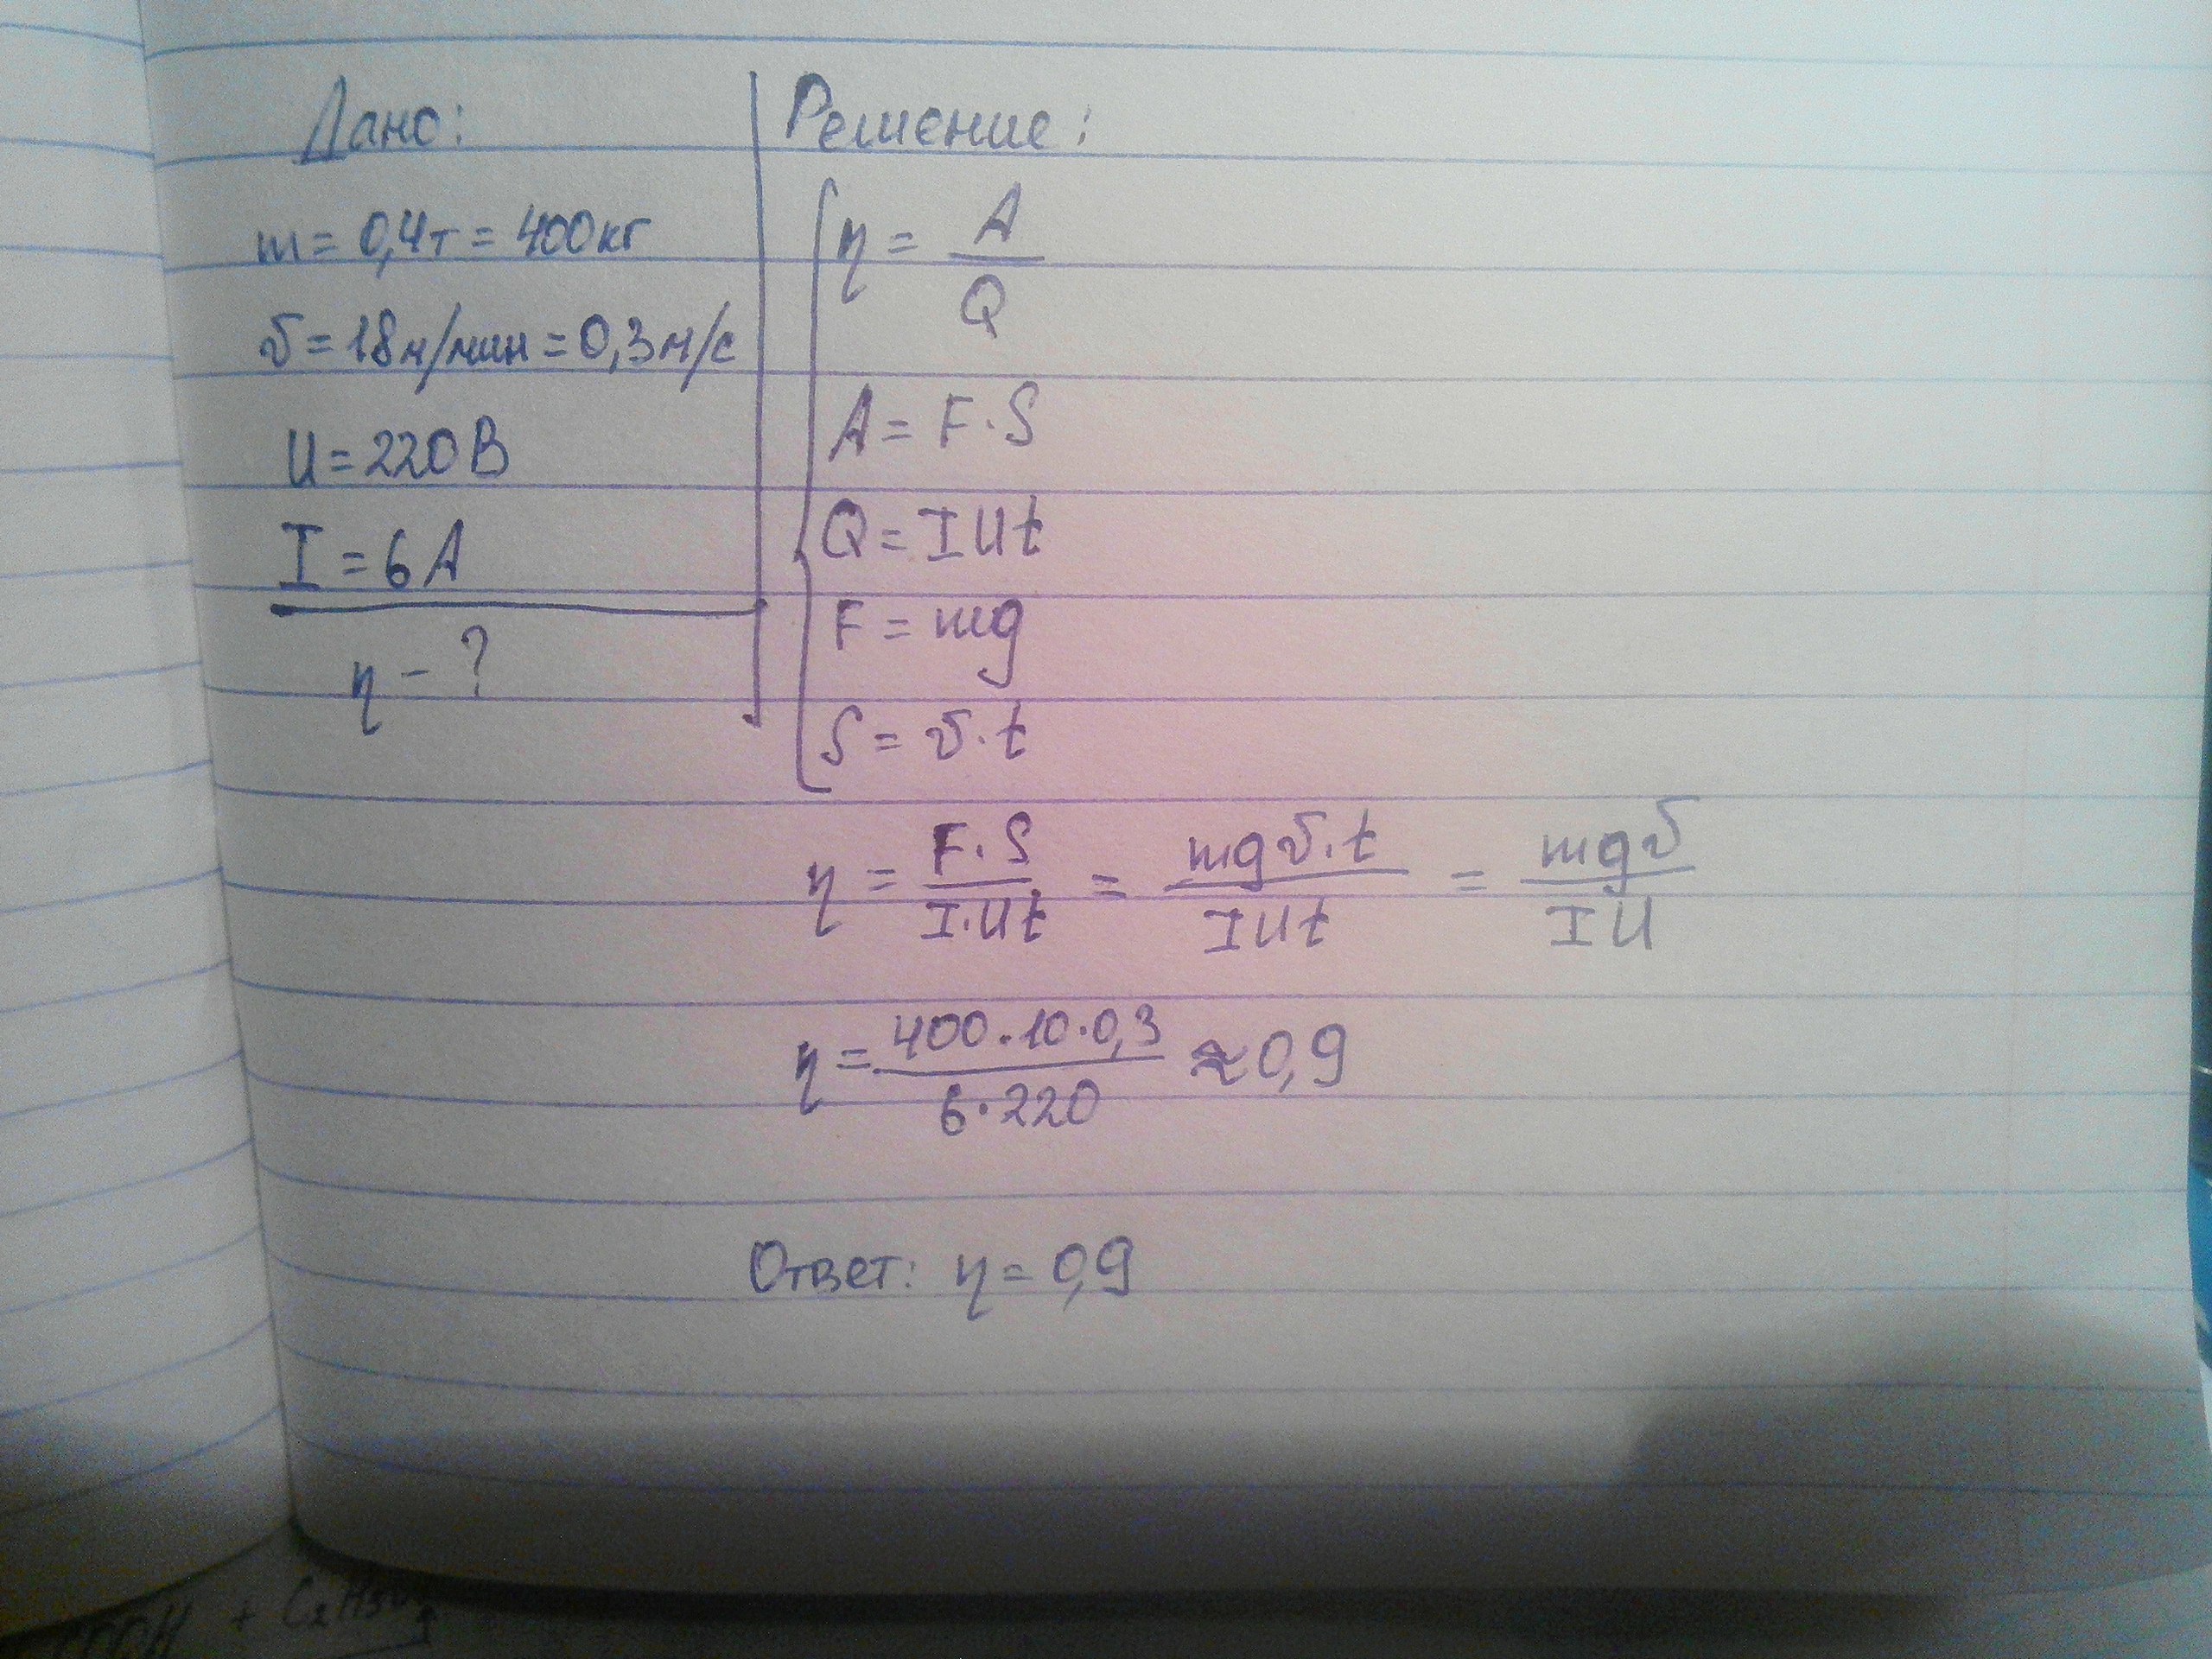 Дано:
m = 0,4т = 400кг
υ = 18м/мин = 0,3м/с
U = 220В
I = 6A
η - ?
Решение:
η = A / Q
A = F · S
Q = IUt
F = mg
S = υ · t
η = F · S / I · Ut = mgυ · t / IUt = mgυ / IU
η = 400 · 10 · 0,3 / 6 · 220 ≈ 0,9
Ответ: η = 0,9
+ C₂H₅